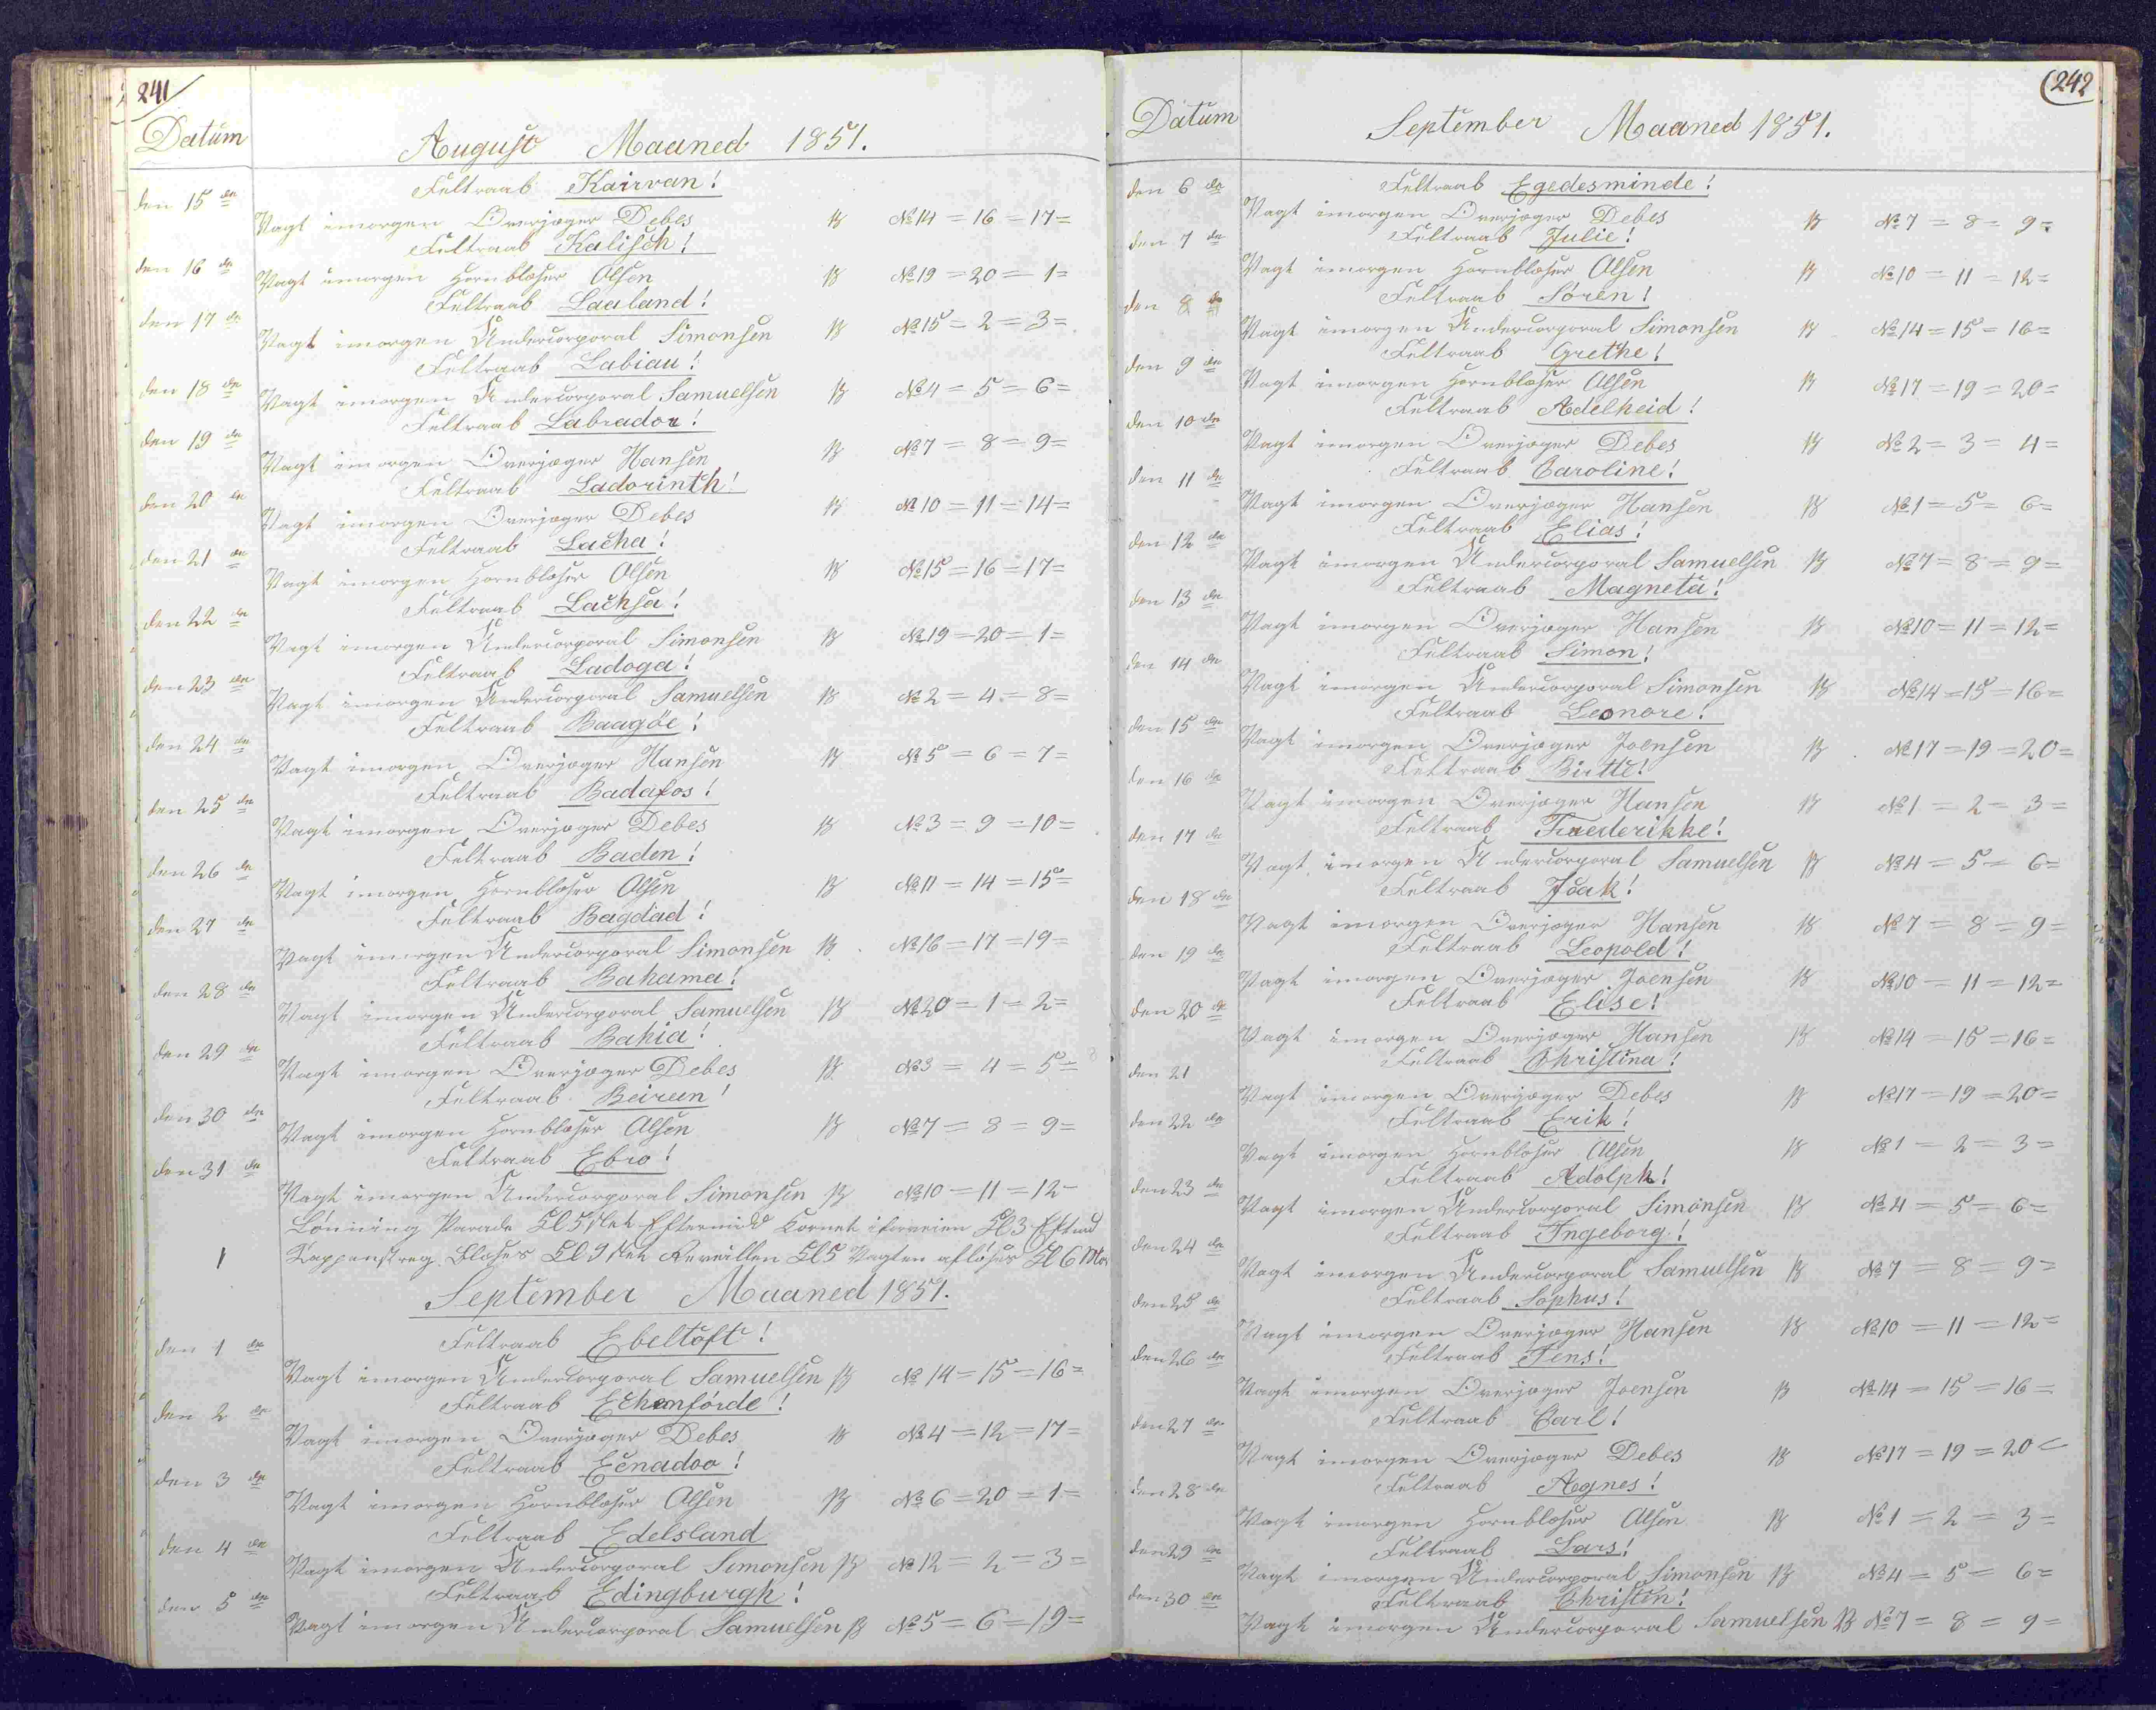 241
Datum
August Maaned 1851.
Feltraab Kairvan!
den 15 de
Vagt imorgen Overjæger Debes ꝑ № 14 = 16 = 17 =
Feltraab Kalisch!
den 16 de
Vagt imorgen Hornblæser Olsen ꝑ № 19 = 20 = 1 =
Feltraab Laaland!
den 17 de
Vagt imorgen Undercorporal Simonsen ꝑ № 15 = 2 = 3 =
Feltraab Labiau!
den 18 de
Vagt imorgen Undercorporal Samuelsen ꝑ № 4 = 5 = 6 =
Feltraab Labrador!
den 19 de
Vagt imorgen Overjæger Hansen ꝑ № 7 = 8 = 9 =
Feltraab Ladorinth!
den 20 de
Vagt imorgen Overjæger Debes ꝑ № 10 = 11 = 14 =
Feltraab Lacha!
den 21 de
Vagt imorgen Hornblæser Olsen ꝑ № 15 = 16 = 17 =
Feltraab Lachsa!
den 22 de
Vagt imorgen Undercorporal Simonsen ꝑ № 19 = 20 = 1 =
Feltraab Ladoga!
den 23 de
Vagt imorgen Undercorporal Samuelsen ꝑ № 2 = 4 = 8 =
Feltraab Baagöe!
den 24 de
Vagt imorgen Overjæger Hansen ꝑ № 5 = 6 = 7 =
Feltraab Badafos!
den 25 de
Vagt imorgen Overjæger Debes ꝑ № 3 = 9 = 10 =
Feltraab Baden!
den 26 de
Vagt imorgen Hornblæser Olsen ꝑ № 11 = 14 = 15 =
Feltraab Bagdad!
den 27 de
Vagt imorgen Undercorporal Simonsen ꝑ № 16 = 17 = 19 =
Feltraab Bahama!
den 28 de
Vagt imorgen Undercorporal Samuelsen ꝑ № 20 = 1 = 2 =
Feltraab Bahia!
den 29 de
Vagt imorgen Overjæger Debes ꝑ № 3 = 4 = 5 =
Feltraab Beireen!
den 30 de
Vagt imorgen Hornblæser Olsen ꝑ № 7 = 8 = 9 =
Feltraab Ebro!
den 31 de
Vagt imorgen Undercorporal Simonsen ꝑ № 10 = 11 = 12 =
Lønning Parade Kl 5 Slet Eftermidd Cornet iforveien Kl 3 Eftmd
1 Tappenstreg Blæses Kl 9 Slet Reveillen Kl 5 Vagten afløses Kl 6 Mor
September Maaned 1851.
Feltraab Ebeltoft!
den 1 de
Vagt imorgen Undercorporal Samuelsen ꝑ № 14 = 15 = 16 =
Feltraab Echernförde!
den 2 de
Vagt imorgen Overjæger Debes ꝑ № 4 = 12 = 17 =
Feltraab Ecnadoo!
den 3 de
Vagt imorgen Hornblæser Olsen ꝑ № 6 = 20 = 1 =
Feltraab Edelsland
den 4 de
Vagt imorgen Undercorporal Simonsen ꝑ № 12 = 2 = 3 =
Feltraab Edingburgh!
den 5 de
Vagt imorgen Undercorporal Samuelsen ꝑ № 5 = 6 = 19 =
242
Datum
September Maaned 1851.
Feltraab Egedesminde!
den 6 de
Vagt imorgen Overjæger Debes ꝑ № 7 = 8 = 9 =
Feltraab Julie!
den 7 de
Vagt imorgen Hornblæser Olsen ꝑ № 10 = 11 = 12 =
Feltraab Søren!
den 8 de
Vagt imorgen Undercorporal Simonsen ꝑ № 14 = 15 = 16 =
Feltraab Grethe!
den 9 de
Vagt imorgen Hornblæser Olsen ꝑ № 17 = 19 = 20 =
Feltraab Adelheid!
den 10 de
Vagt imorgen Overjæger Debes ꝑ № 2 = 3 = 4 =
Feltraab Caroline!
den 11 de
Vagt imorgen Overjæger Hansen ꝑ № 1 = 5 = 6 =
Feltraab Elias!
den 12 de
Vagt imorgen Undercorporal Samuelsen ꝑ № 7 = 8 = 9 =
Feltraab Magneta!
den 13 de
Vagt imorgen Overjæger Hansen ꝑ № 10 = 11 = 12 =
Feltraab Simon!
den 14 de
Vagt imorgen Undercorporal Simonsen ꝑ № 14 = 15 = 16 =
Feltraab Leonore!
den 15 de
Vagt imorgen Overjæger Joensen ꝑ № 17 = 19 = 20 =
Feltraab Birtte!
den 16 de
Vagt imorgen Overjæger Hansen ꝑ № 1 = 2 = 3 =
Feltraab Frederikke!
den 17 de
Vagt imorgen Undercorporal Samuelsen ꝑ № 4 = 5 = 6 =
Feltraab Isak!
den 18 de
Vagt imorgen Overjæger Hansen ꝑ № 7 = 8 = 9 =
Feltraab Leopold!
den 19 de
Vagt imorgen Overjæger Joensen ꝑ № 10 = 11 = 12 =
Feltraab Elise!
den 20 de
Vagt imorgen Overjæger Hansen ꝑ № 14 = 15 = 16 =
Feltraab Christina!
den 21
Vagt imorgen Overjæger Debes ꝑ № 17 = 19 = 20 =
Feltraab Erik!
den 22 de
Vagt imorgen Hornblæser Olsen ꝑ № 1 = 2 = 3 =
Feltraab Adolph!
den 23 de
Vagt imorgen Undercorporal Simonsen ꝑ № 4 = 5 = 6 =
Feltraab Ingeborg!
den 24 de
Vagt imorgen Undercorporal Samuelsen ꝑ № 7 = 8 = 9 =
Feltraab Sophus!
den 25 de
Vagt imorgen Overjæger Hansen ꝑ № 10 = 11 = 12 =
Feltraab Jens!
den 26 de
Vagt imorgen Overjæger Joensen ꝑ № 14 = 15 = 16 =
Feltraab Carl!
den 27 de
Vagt imorgen Overjæger Debes ꝑ № 17 = 19 = 20 =
Feltraab Agnes!
den 28 de
Vagt imorgen Hornblæser Olsen ꝑ № 1 = 2 = 3 =
Feltraab Lars!
den 29 de
Vagt imorgen Undercorporal Simonsen ꝑ № 4 = 5 = 6 =
Feltraab Christen!
den 30 de
Vagt imorgen Undercorporal Samuelsen ꝑ № 7 = 8 = 9 =